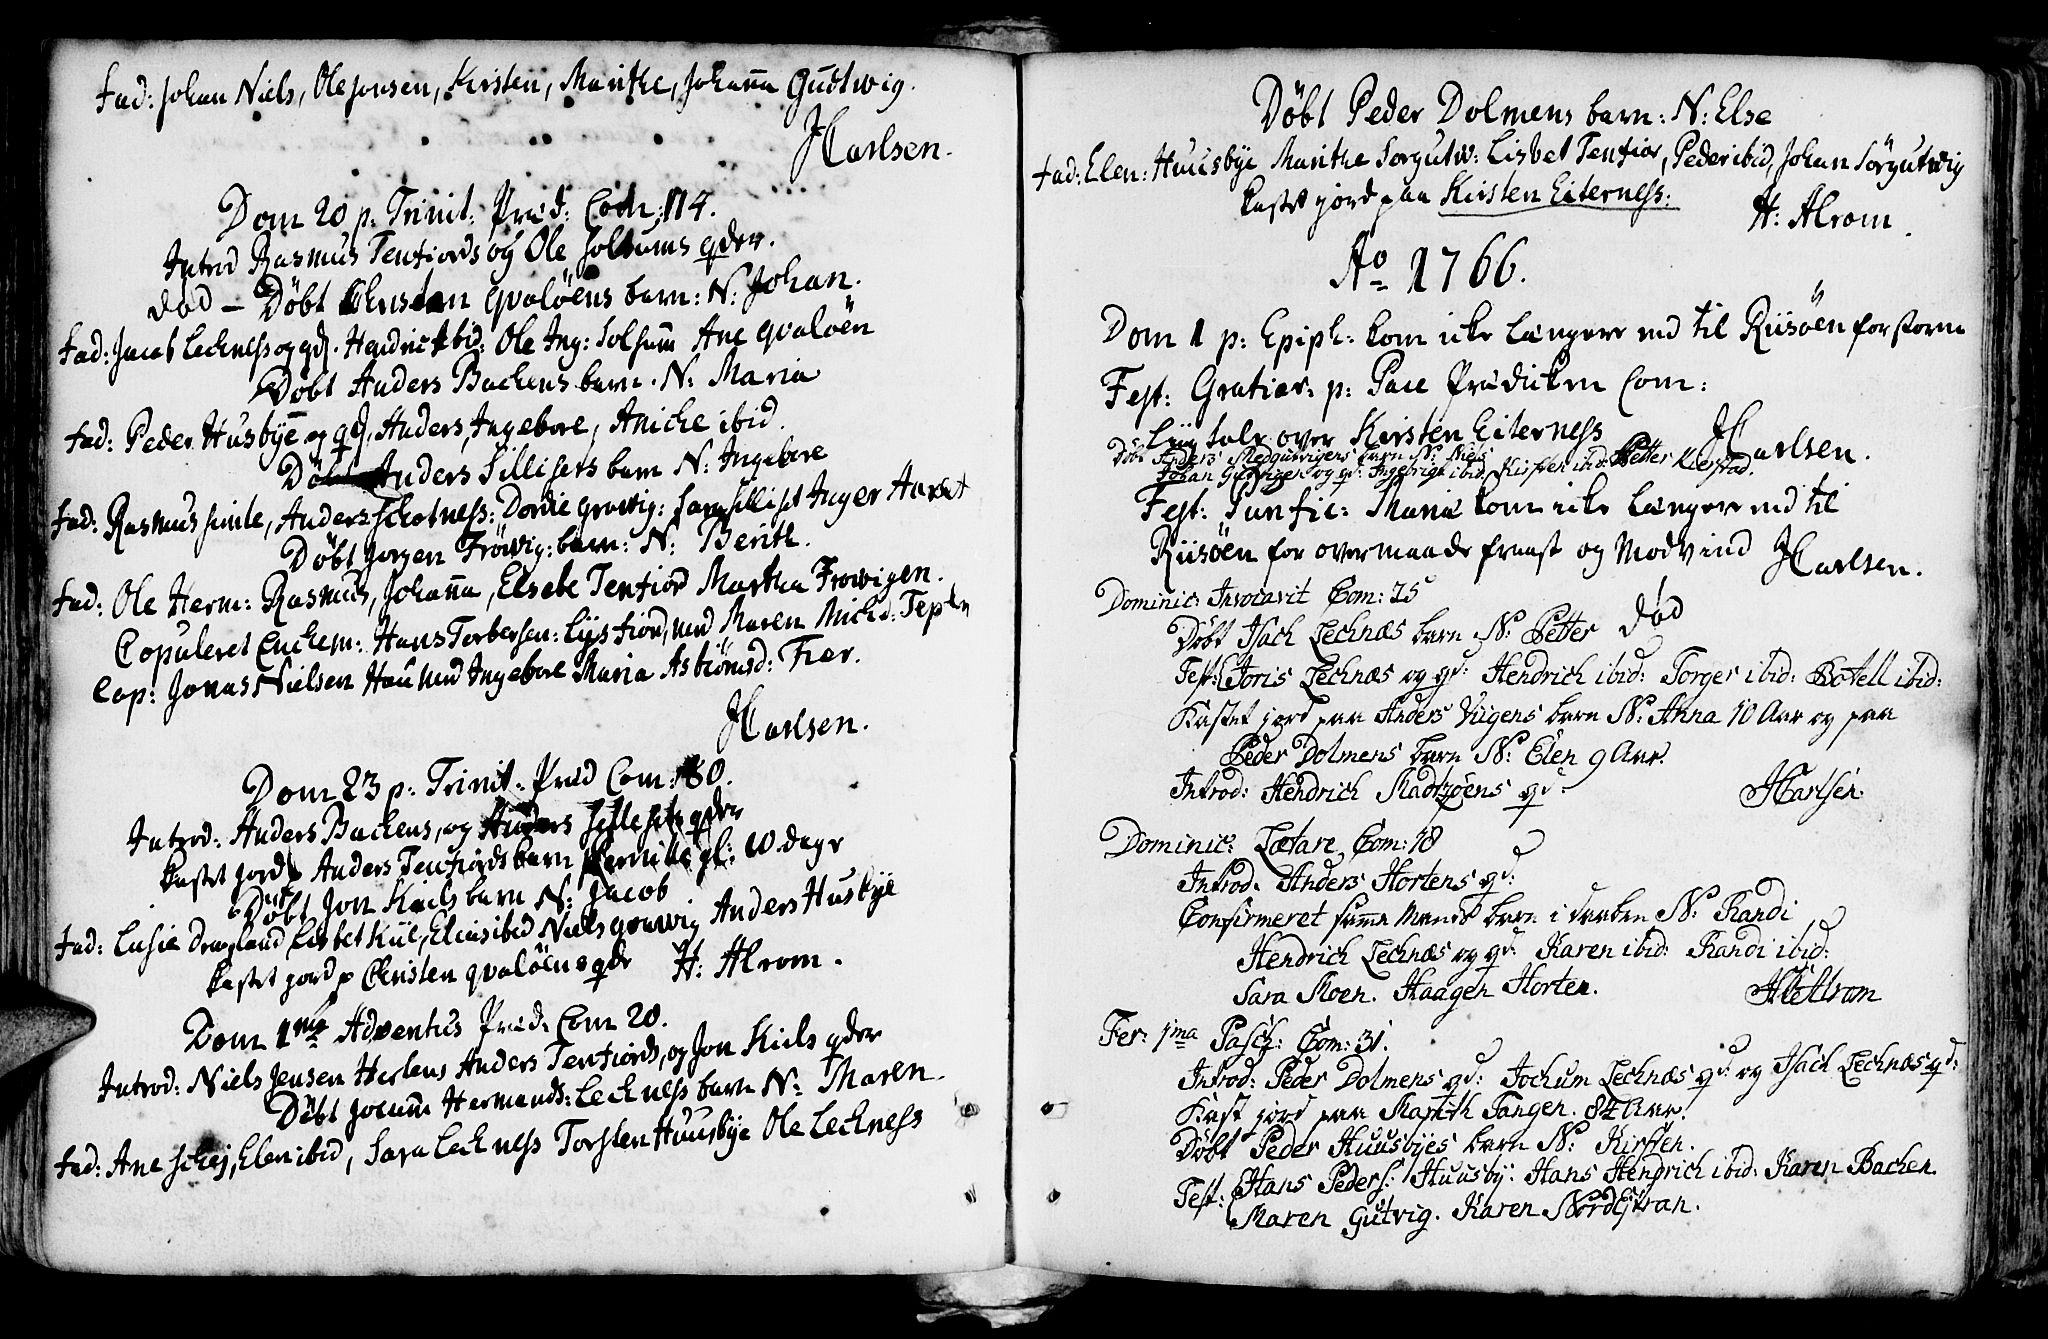 Fad: Johan Niels, Ole Jonsen, Kirsten, Marithe, Johanna Gudtwig.
HCarlsen.
Dom 20 p: Trinit: Præd: Com: 114.
Introd Rasmus Tenfiords og Ole Solsums qder.
død – Døbt Christen Qvaløens barn: N: Johan.
Fad: Jacob Lechness og qd. Hendrick ibid: Ole Ing: Solsum Ane Qvaløen
Døbt Anders Bachens barn. N: Maria
Fad: Peder Husbye og qd, Anders, Ingebore, Aniche ibid.
Døbt Anders Sillisets barn N: Ingebore
Fad: Rasmus Simle, Anders Schotness: Dordie Gravig: Sara Silliset Inger Aarset
Døbt Jorgen Frøvig: barn: N: Berith.
Fad: Ole Herm: Rasmus, Johanna, Elsebe Tenfiord Martha Frøvigen.
Copuleret Enchem: Hans Torbersen: Lysfiord, med Maren Michd: Teplen
Cop: Jonas Nielsen Hau med Ingebore Maria Asbiørnsd: Fier.
HCarlsen.
Dom 23 p: Trinit. Præd Com: 180.
Introd: Anders Bachens, og Anders Sillesets qder
kastet jord p Anders Tenfiords barn Pernille gl: 10 dage
Døbt Jon Kiils barn N: Jacob
Fad: Lusie Dragland Lisbet Kiil, Elias ibid Niels Gravvig Anders Husbye
kastet jord p Christen Qvaløens qdr H: Alrom.
Dom 1ma Adventus Præd. Com 20.
Introd: Niels Jensen Horlens Anders Tenfiords, og Jon Kiels qder
Døbt Jocum Hermands: Lechness barn N: Maren.
Fad: Ane Schej, Elen ibid, Sara Lechness Torsten Huusbye Ole Lechness
Døbt Peder Dolmens barn: N: Else
Fad: Elen: Huusbye Marithe Sørgutw: Lisbet Tenfior, Peder ibid, Johan Sørgutwig
kastet jord paa Kirsten Eiterness:
H: Alrom.
Ao 1766.
Dom 1 p: Epiph: kom icke længere end til Riisøen for storm
Fest: Gratiar: p: Pace Prædicken Com:
Liig tale over Kirsten Eiterness
HCarlsen.
Døbt Anders Medgutvigens barn N: Niels
Johan Gutvigen og qd: Ingebrigt ibid: Kirsten ibid: Petter Kierstad.
Fest: Purific: Mariæ kom icke længere end til
Riisøen for overmaade fraast og Modvind HCarlsen.
Dominic: Invocavit Com: 25
Døbt Isach Lechnæs barn N: Petter død
Test: Joris Lechnæs og qd: Hendrich ibid: Torger ibid: Botell ibid:
Kastet jord paa Anders Viigens barn N: Anna 10 Aar og paa
Peder Dolmens barn N: Elen 9 Aar.
Introd: Hendrich Madsøens qd:
HCarlsen.
Dominic: Lætare Com: 18
Introd. Anders Hortens qd:
Confirmeret samme Mands barn i daaben N: Randi
Hendrich Lechnæs og qd: Karen ibid: Randi ibid:
Sara Moen. Haagen Horten.
HAlrom
Fer: 1ma Pasch: Com: 31.
Introd: Peder Dolmens qd: Jochum Lechnæs qd: og Isach Lechnæs qd:
Kast jord paa Marith Tangen. 84 Aar.
Døbt Peder Huusbyes barn N: Kirsten.
Test: Hans Peders: Huusby: Hans Hendrich ibid: Karen Bachen.
Maren Gutvig. Karen Nordstran.